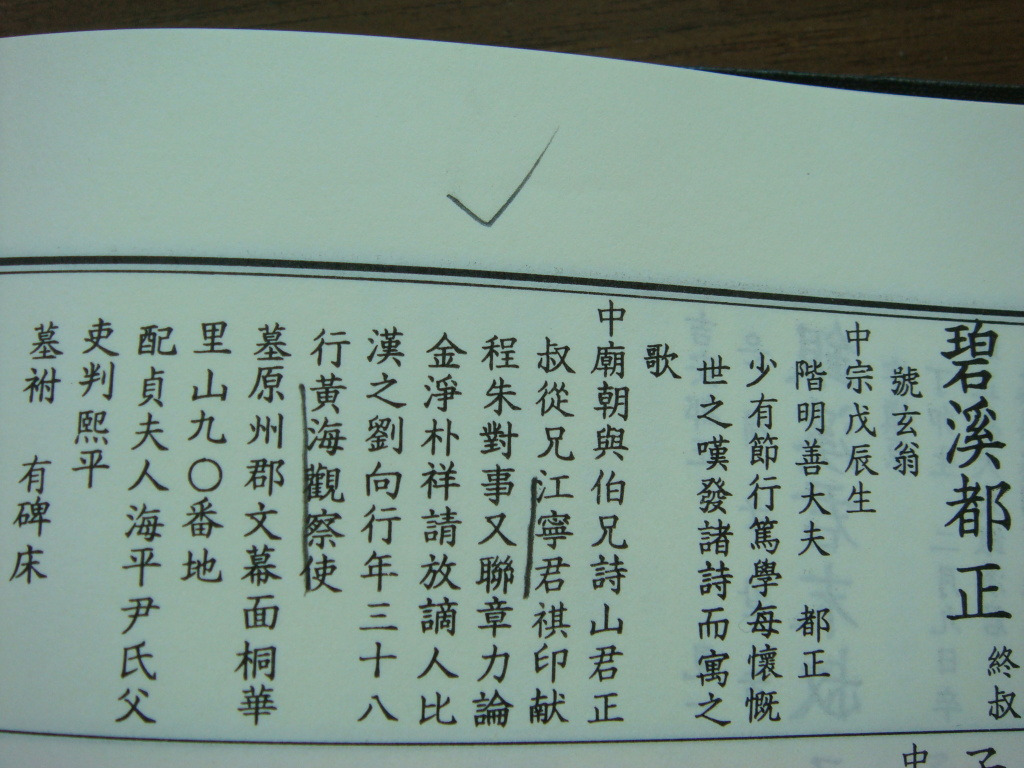 碧溪都正 終叔
號玄翁
中宗戊辰生
階明善大夫 都正
少有節行篤學每懷慨
世之嘆發諸詩而寓之
歌
中廟朝與伯兄詩山君正
叔從兄江寧君祺印献
程朱對事又聯章力論
金淨朴祥請放謫人比
漢之劉向行年三十八
行黃海觀察使
墓原州郡文幕面桐華
里山九〇番地
配貞夫人海平尹氏父
吏判熙平
墓祔 有碑床
子
中